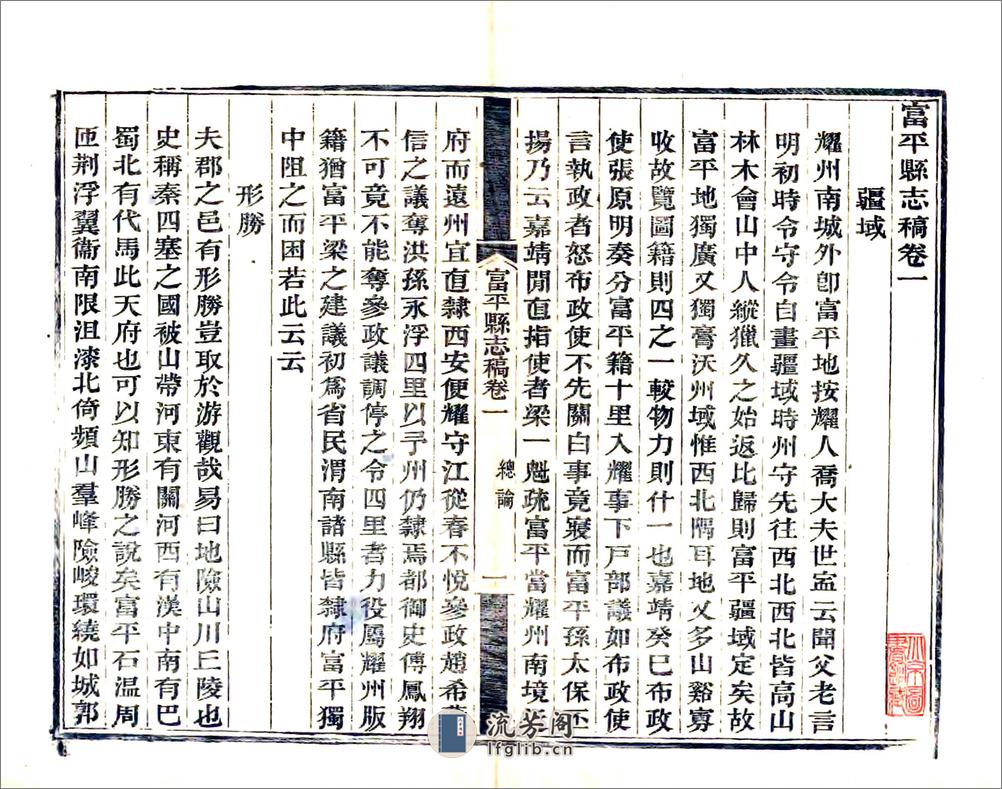 富平縣志稿卷一
疆域
耀州南城外卽富平地按耀人喬大夫世盁云聞父老言
明初時令守令自畫疆域時州守先往西北西北皆高山
林木會山中人縱獵久之始返比歸則富平疆域定矣故
富平地獨廣又獨膏沃州域惟西北隅耳地又多山谿寡
收故覽圖籍則四之一較物力則什一也嘉靖癸巳布政
使張原明奏分富平籍十里入耀事下戸部議如布政使
言執政者怒布政使不先關白事竟寢而富平孫太保丕
揚乃云嘉靖閒直指使者梁一魁疏富平當耀州南境去
富平縣志稿卷一
總論
一
府而遠州宜直隸西安便耀守江從春不悅參政趙希
信之議奪洪孫永浮四里以予州仍隸焉都御史傅鳳翔
不可竟不能奪參政議調停之令四里者力役屬耀州版
籍猶富平梁之建議初爲省民渭南諸縣皆隸府富平獨
中阻之而困若此云云
形勝
夫郡之邑有形勝豈取於游觀哉易曰地險山川丘陵也
史稱秦四塞之國被山帶河東有關河西有漢中南有巴
蜀北有代馬此天府也可以知形勝之說矣富平石温周
匝荆浮翼衞南限沮漆北倚頻山羣峰險峻環繞如城郭
流芳阁
lfglib.cn